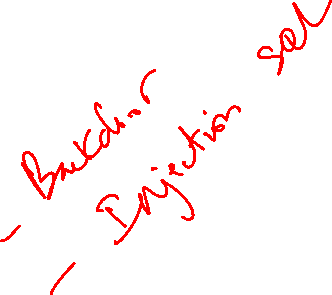 - Backdoor
- Injection sel